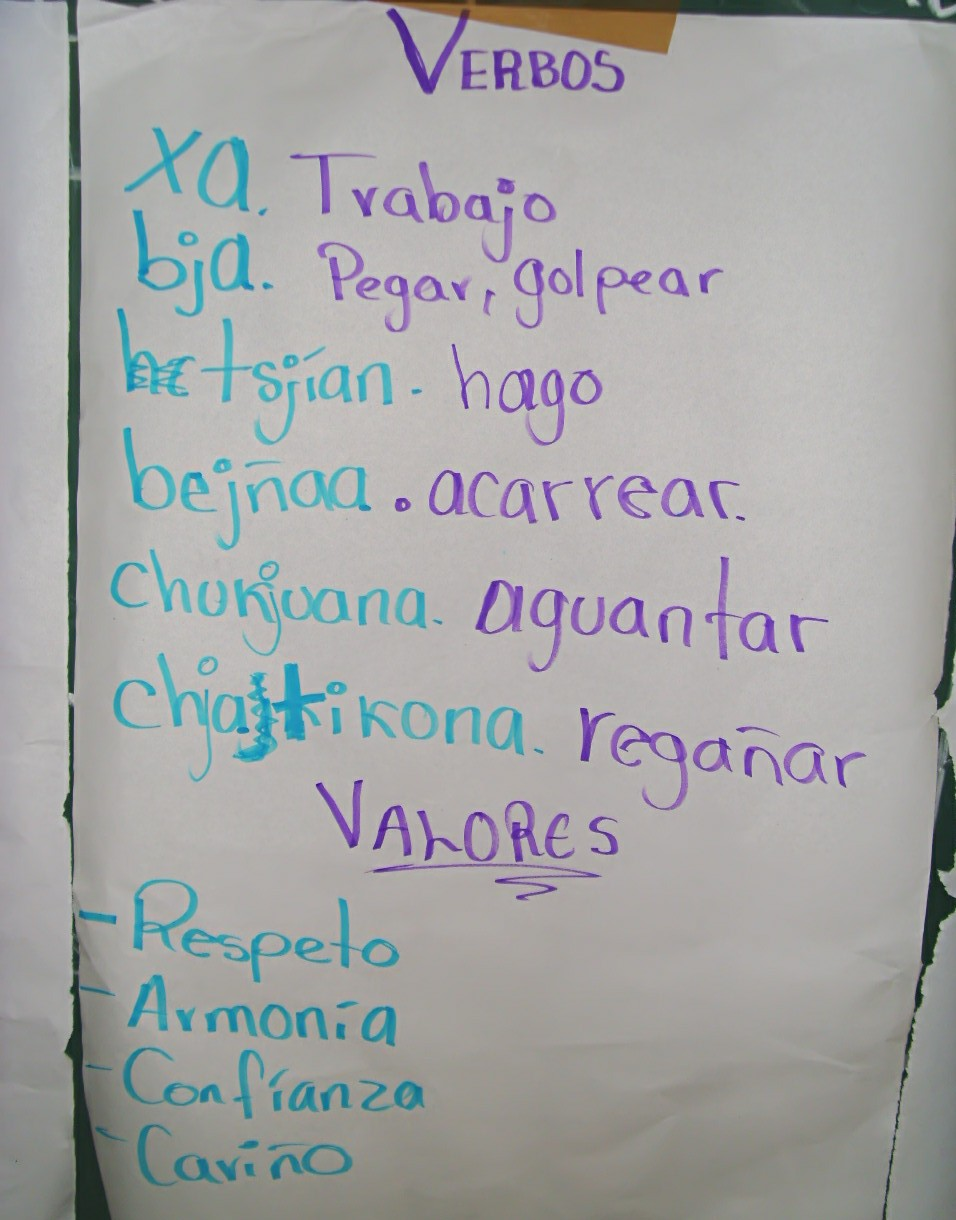 VERBOS
xa. Trabajo
bja. Pegar, golpear
tsjían. hago
bejñaa. acarrear.
chunjuana. aguantar
chjatikona. regañar
VALORES
- Respeto
- Armonía
- Confíanza
- Cariño